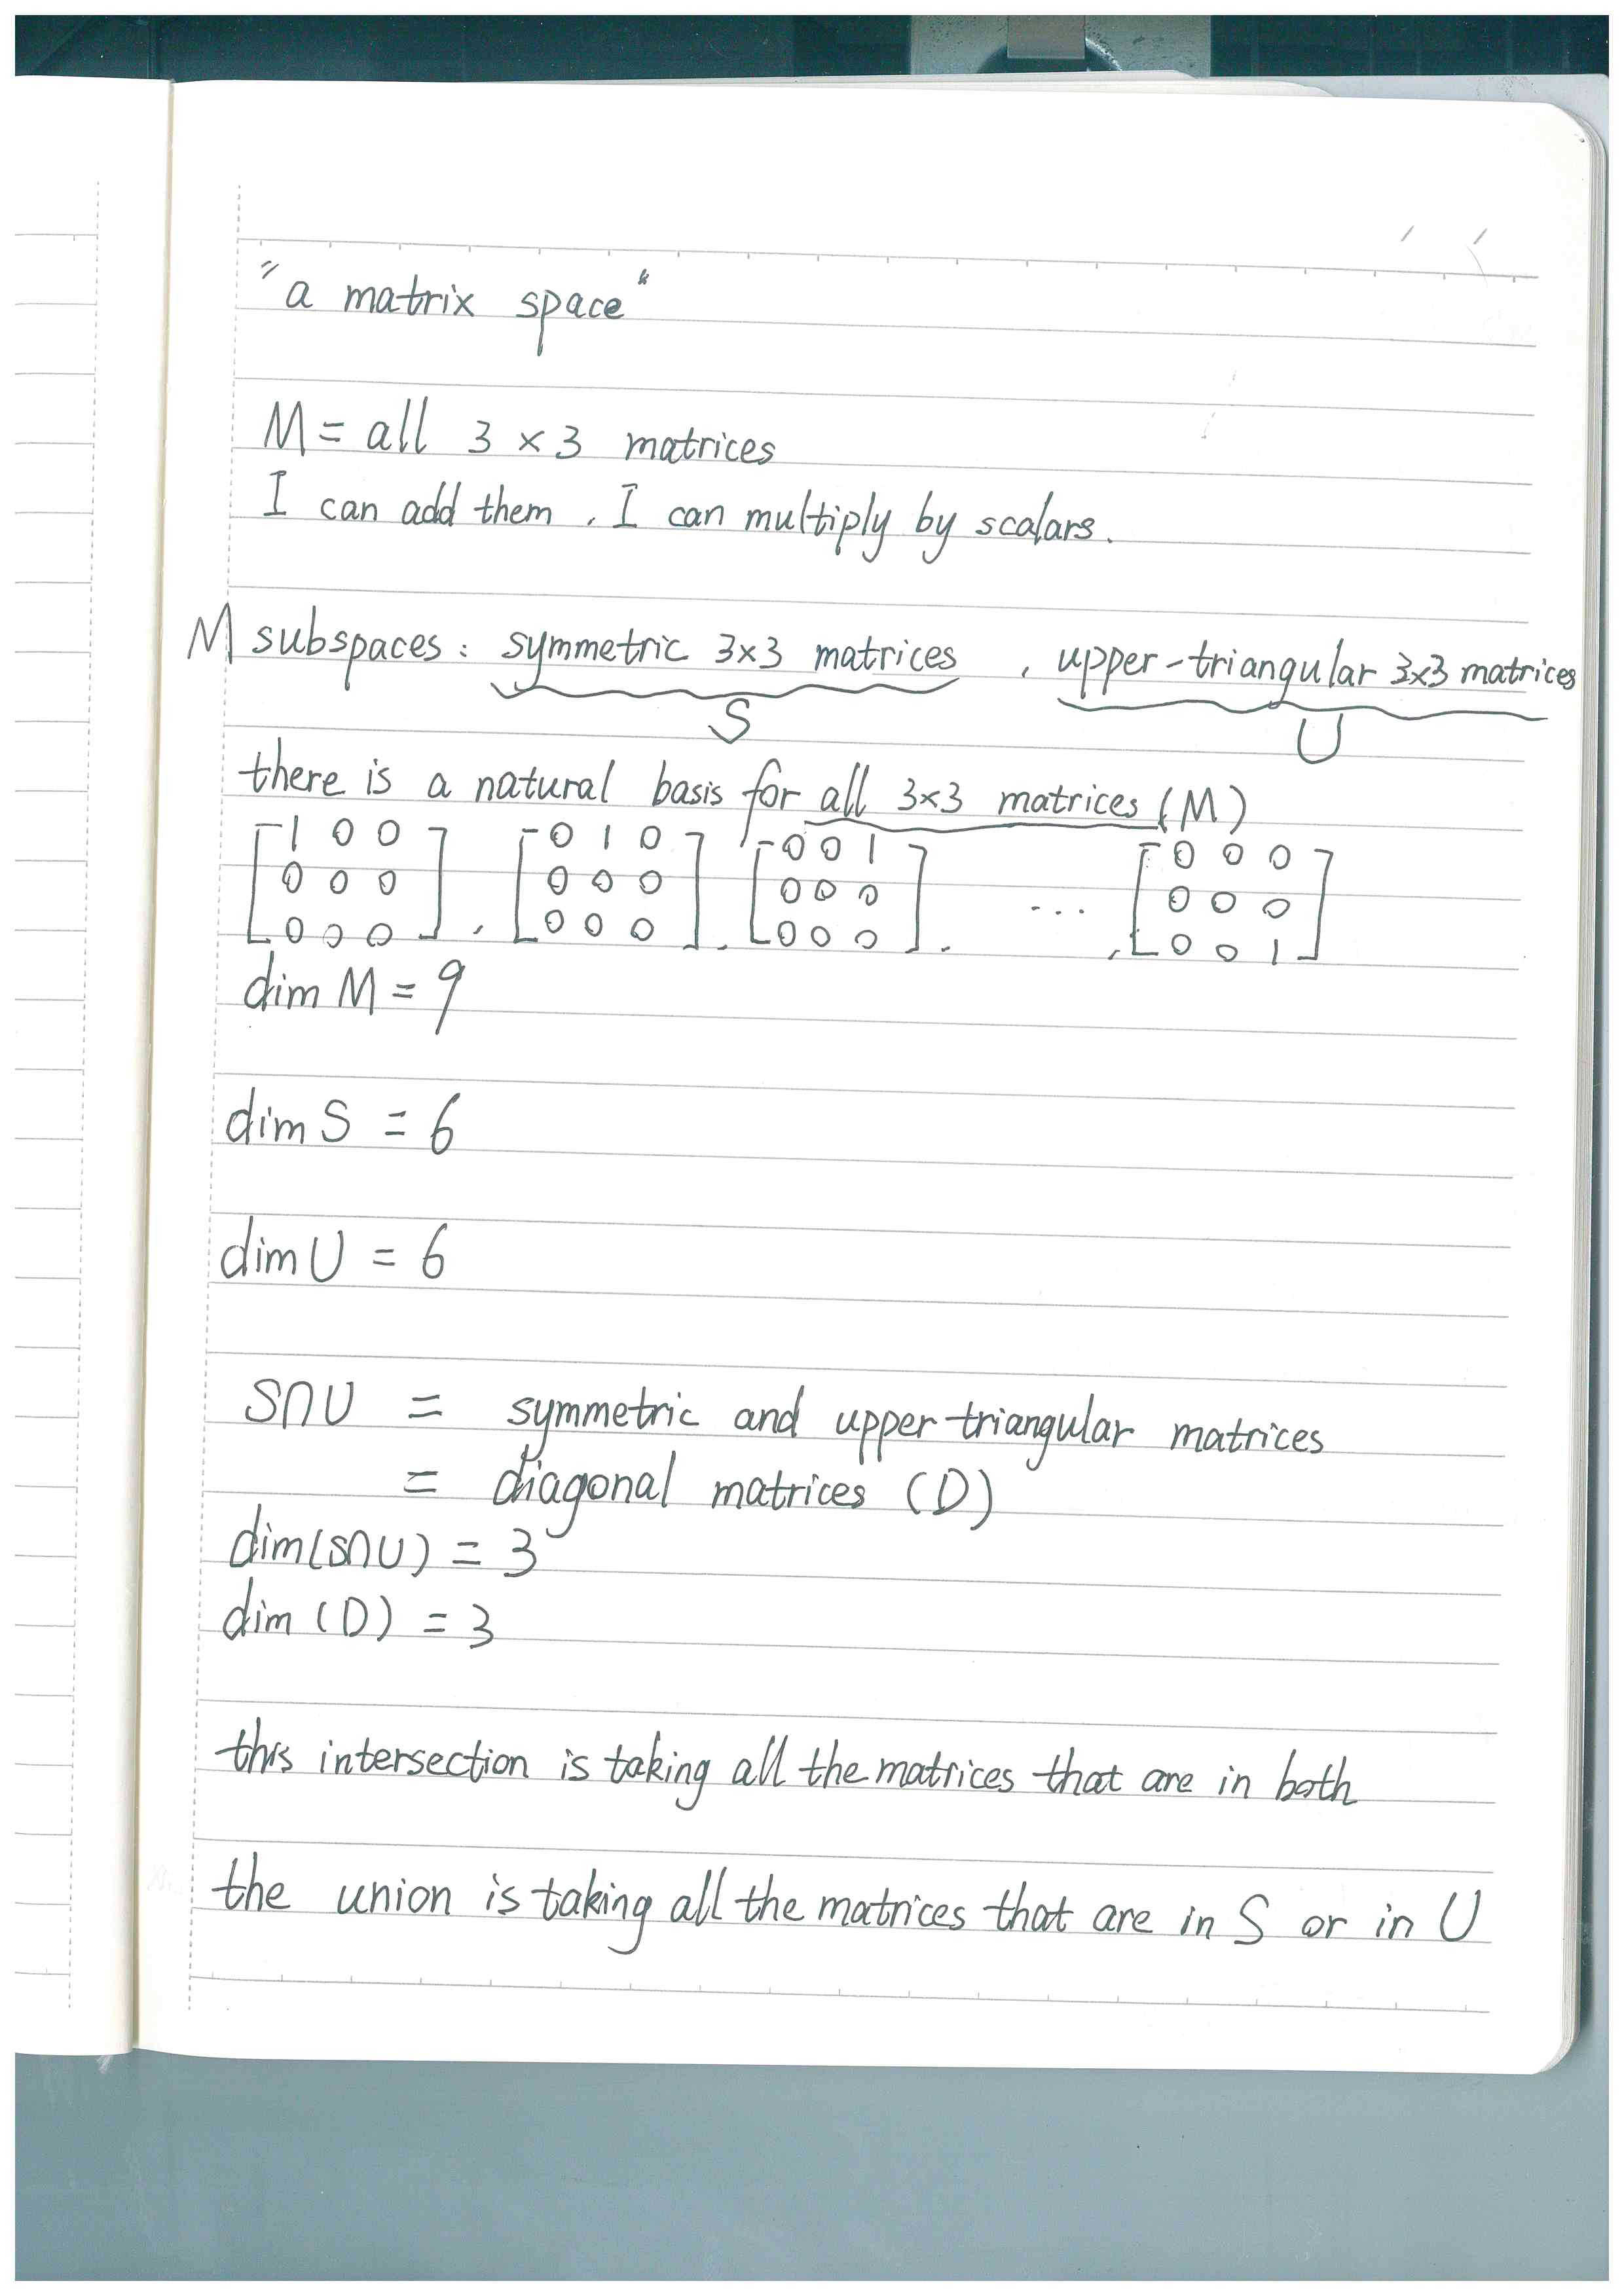 "a matrix space"
M = all 3 × 3 matrices
I can add them, I can multiply by scalars.
M subspaces: symmetric 3×3 matrices, upper-triangular 3×3 matrices
S U
there is a natural basis for all 3×3 matrices (M)
[1 0 0 [0 1 0 [0 0 1 [0 0 0
0 0 0 0 0 0 0 0 0 ... 0 0 0
0 0 0], 0 0 0], 0 0 0], , 0 0 1]
dim M = 9
dim S = 6
dim U = 6
S∩U = symmetric and upper-triangular matrices
= diagonal matrices (D)
dim(S∩U) = 3
dim (D) = 3
this intersection is taking all the matrices that are in both
the union is taking all the matrices that are in S or in U